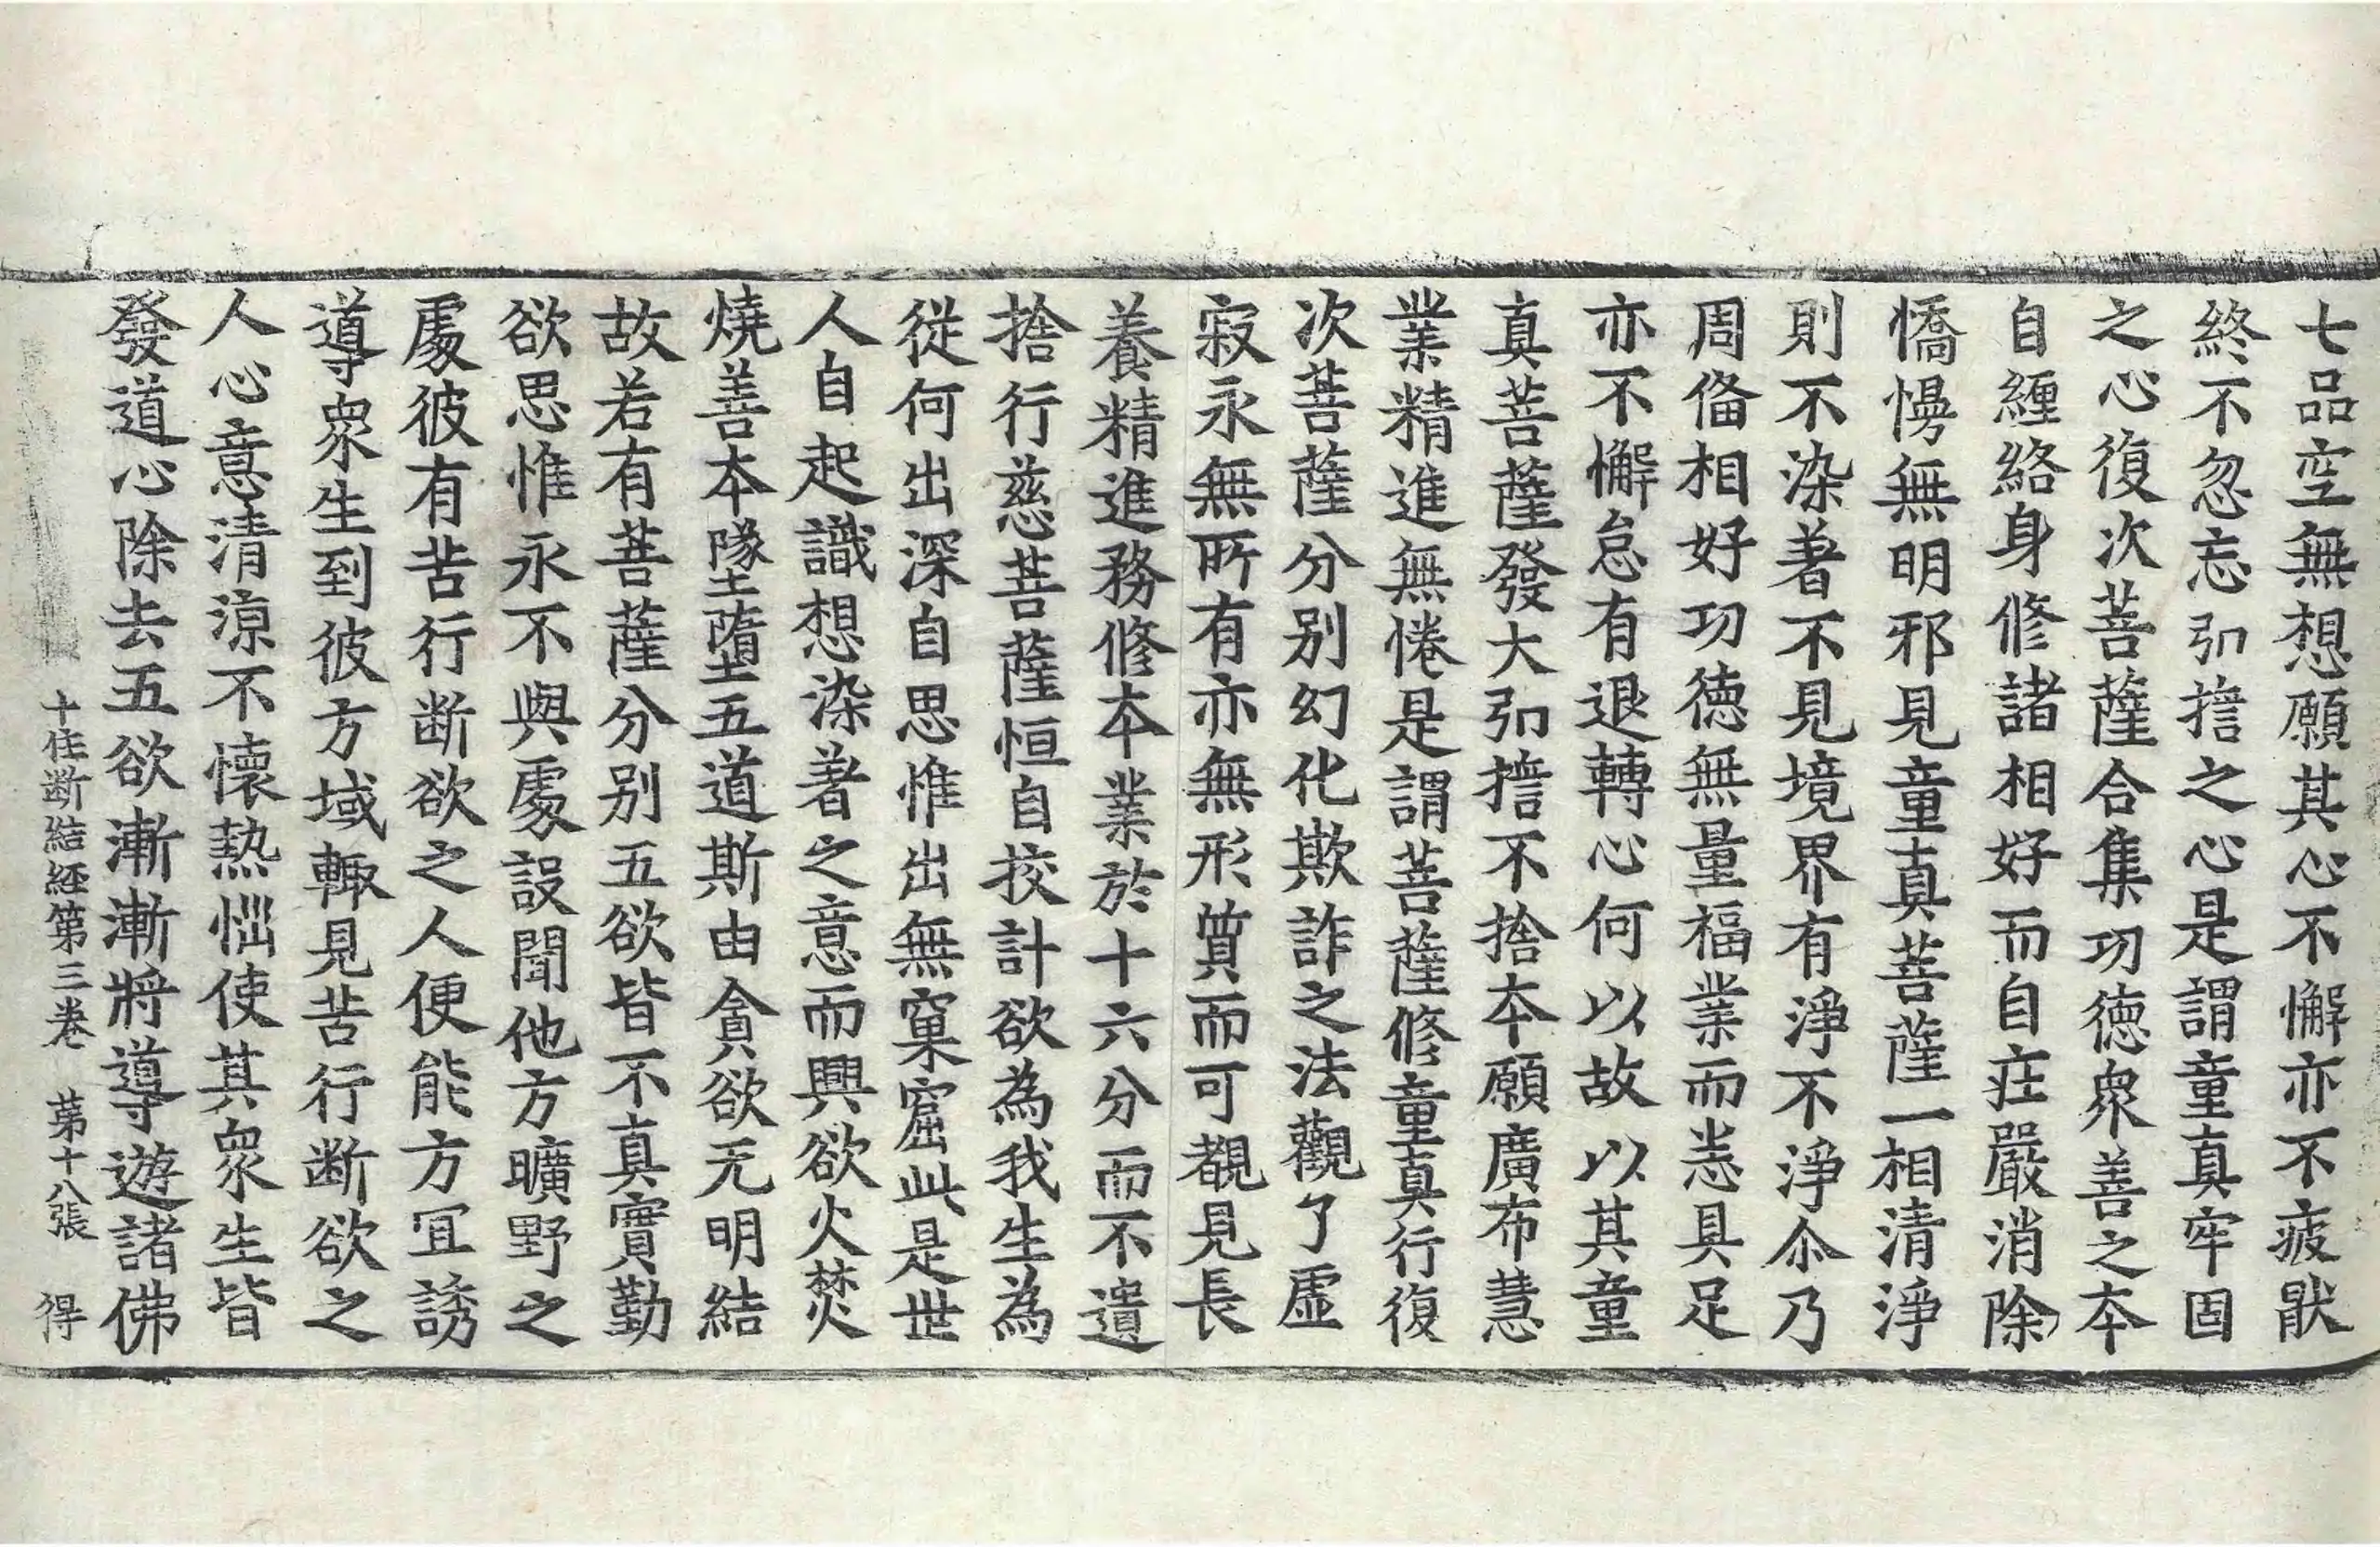 七品空無想願其心不懈亦不疲猒
終不忽忘弘擔之心是謂童真牢固
之心復次菩薩合集功德衆善之本
自纏絡身修諸相好而自莊嚴消除
憍慢無明邪見童真菩薩一相清淨
則不染著不見境界有淨不淨尒乃
周俻相好功德無量福業而恙具足
亦不懈怠有退轉心何以故以其童
真菩薩發大弘擔不捨本願廣布慧
業精進無惓是謂菩薩修童真行復
次菩薩分别幻化欺詐之法觀了虛
寂永無所有亦無形質而可覩見長
養精進務修本業於十六分而不遺
捨行慈菩薩恒自挍計欲為我生為
從何出深自思惟出無窠窟此是世
人自起識想染著之意而興欲火焚
燒善本墜墮五道斯由貪欲无明結
故若有菩薩分别五欲皆不真實勤
欲思惟永不與處設聞他方曠野之
處彼有苦行断欲之人便能方冝誘
導衆生到彼方域輙見苦行断欲之
人心意清涼不懷熱惱使其衆生皆
發道心除去五欲漸漸將導遊諸佛
十住断結經第三卷 第十八張 得